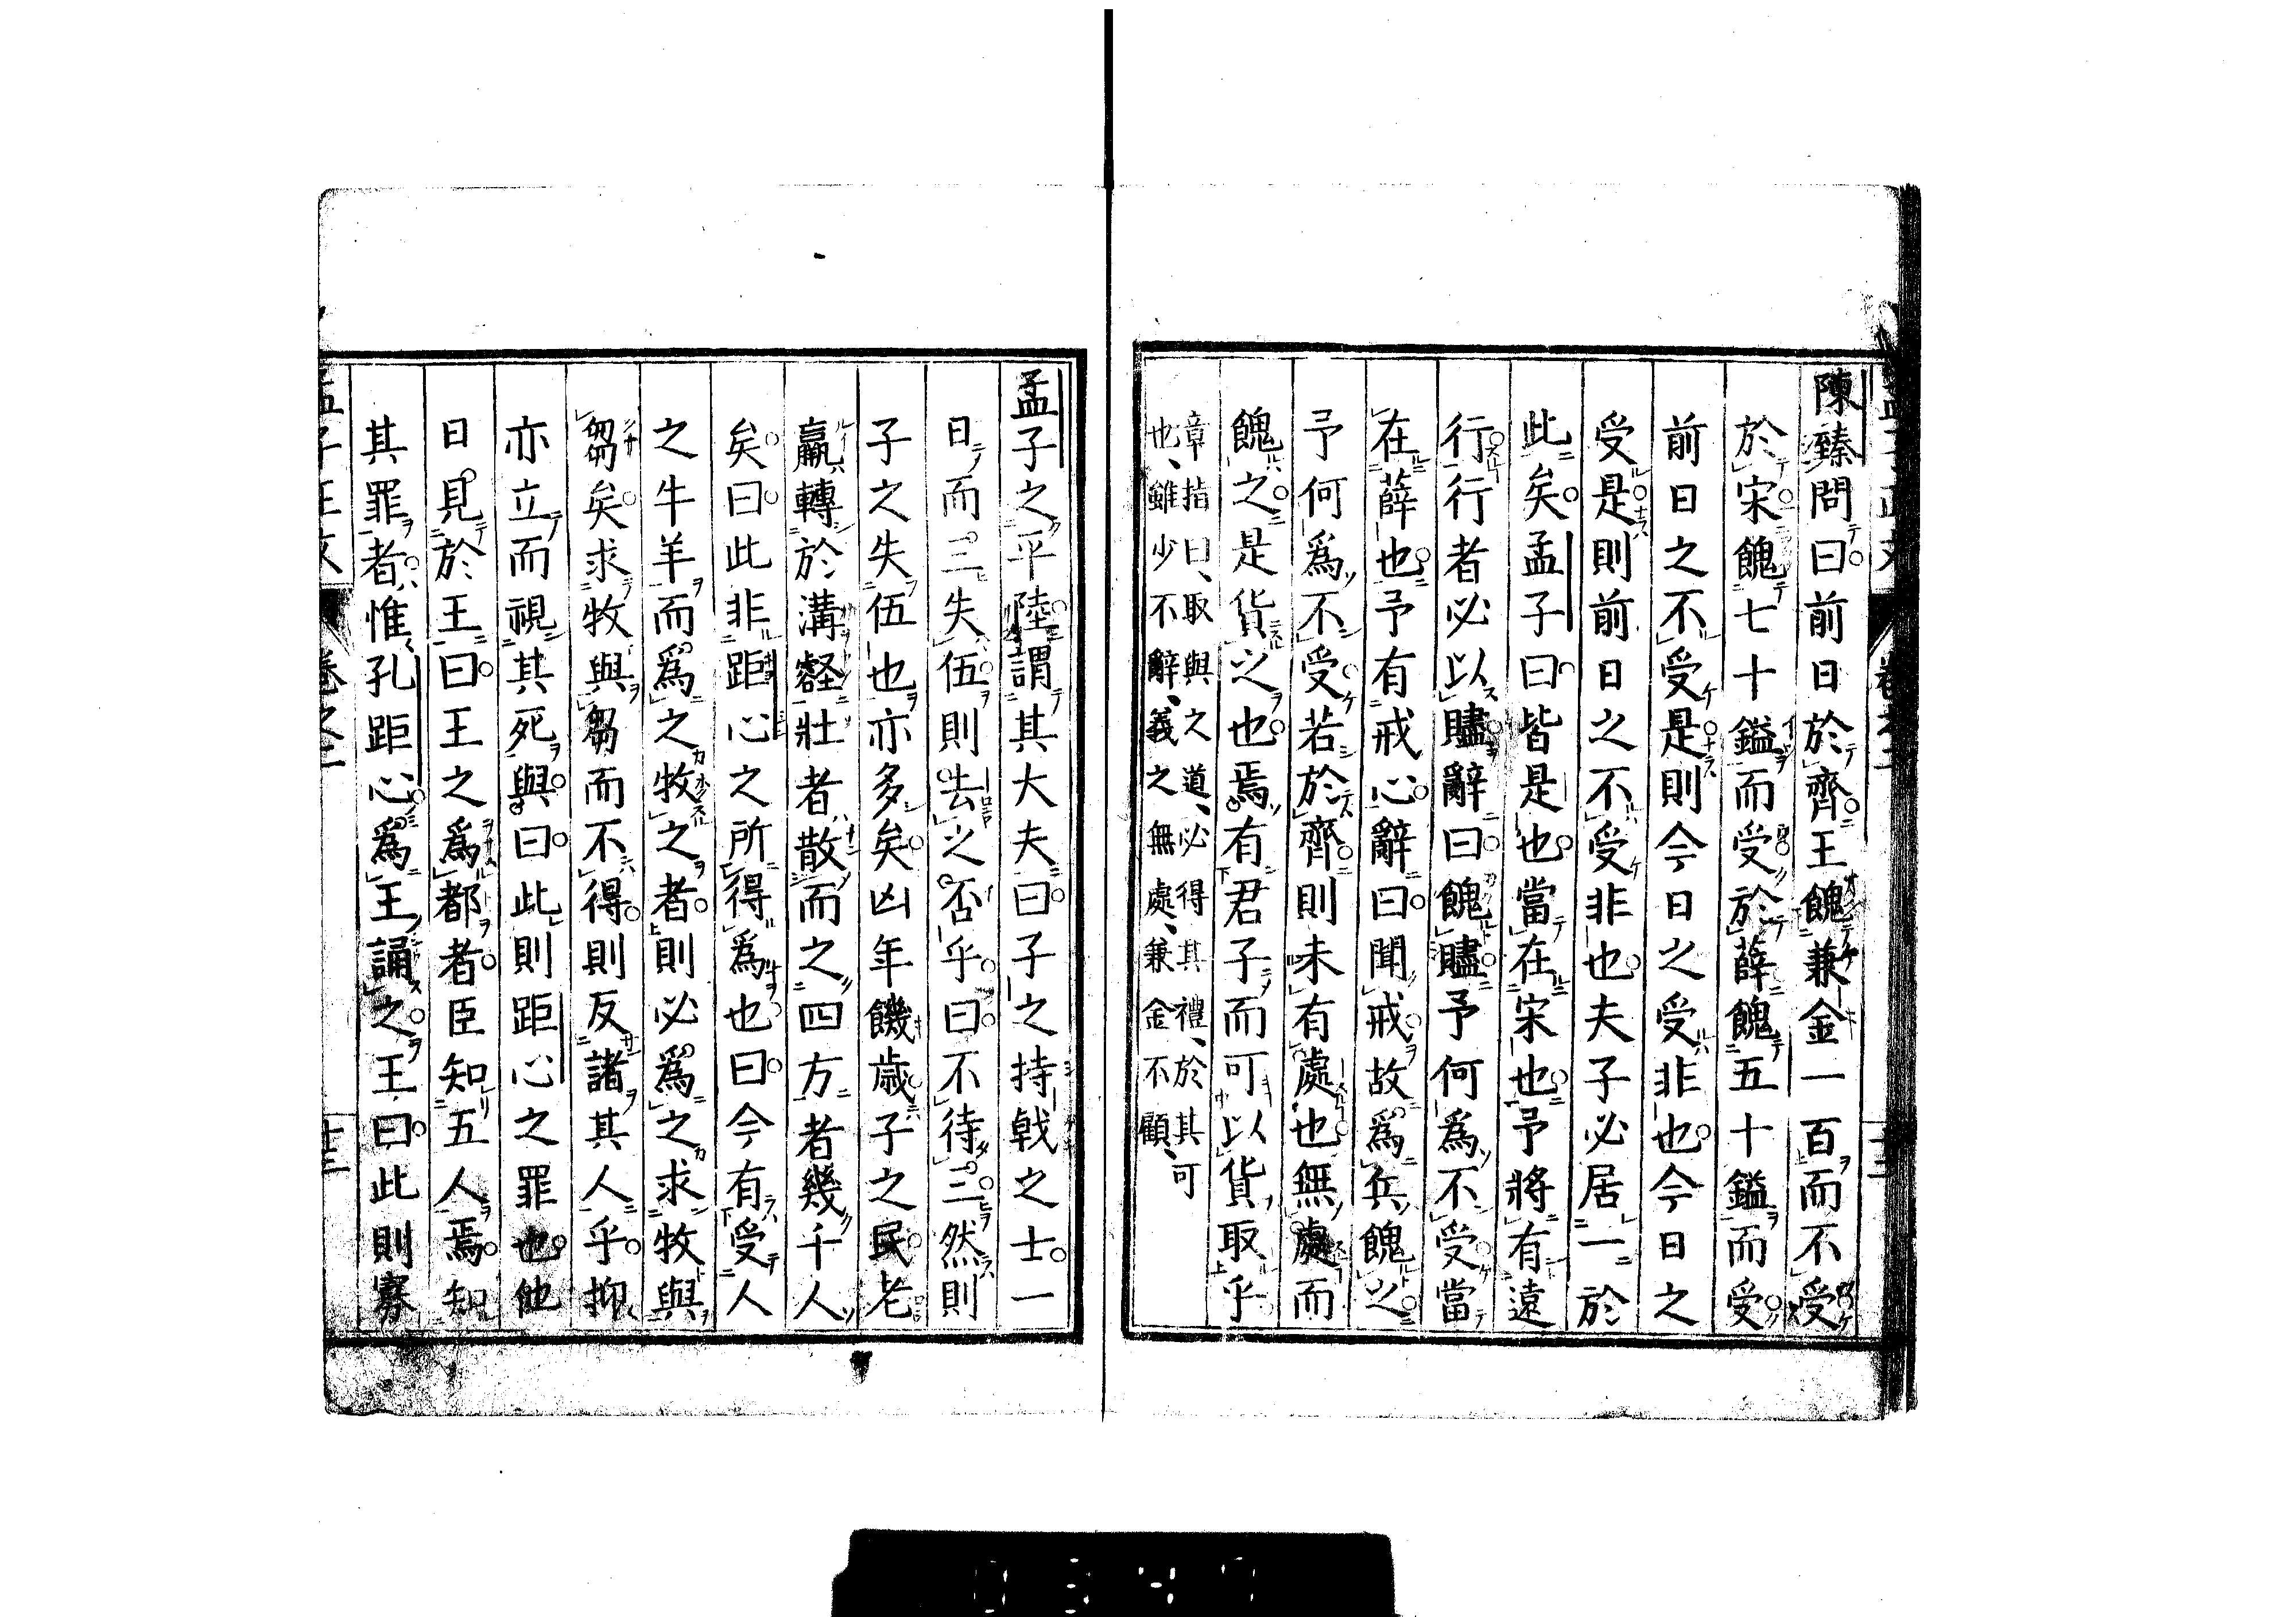 陳臻問曰前日於齊王餽兼金一百而不受
於宋餽七十鎰而受於薛餽五十鎰而受
前日之不受是則今日之受非也今日之
受是則前日之不受非也夫子必居一於
此矣孟子曰皆是也當在宋也予將有遠
行行者必以贐辭曰餽贐予何為不受當
在薛也予有戒心辭曰聞戒故為兵餽之
予何為不受若於齊則未有處也無處而
餽之是貨之也焉有君子而可以貨取乎
章指曰、取與之道、必得其禮、於其可
也、雖少不辭、義之無處、兼金不顧、
孟子之平陸謂其大夫曰子之持戟之士一
日而三失伍則去之否乎曰不待三然則
子之失伍也亦多矣凶年饑歲子之民老
羸轉於溝壑壯者散而之四方者幾千人
矣曰此非距心之所得為也曰今有受人
之牛羊而為之牧之者則必為之求牧與
芻矣求牧與芻而不得則反諸其人乎抑
亦立而視其死與曰此則距心之罪也他
日見於王曰王之為都者臣知五人焉知
其罪者惟孔距心為王誦之王曰此則寡
卷之二
十三